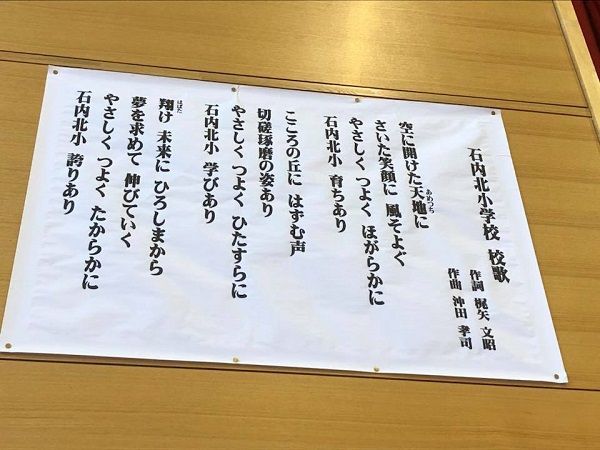 石内北小学校 校歌
作詞 梶矢 文昭
作曲 沖田 孝司
空に開けた天地に
あめつち
さいた笑顔に 風そよぐ
やさしく つよく ほがらかに
石内北小 育ちあり
こころの丘に はずむ声
切磋琢磨の姿あり
やさしく つよく ひたすらに
石内北小 学びあり
翔け 未来に ひろしまから
はばた
夢を求めて 伸びていく
やさしく つよく たからかに
石内北小 誇りあり